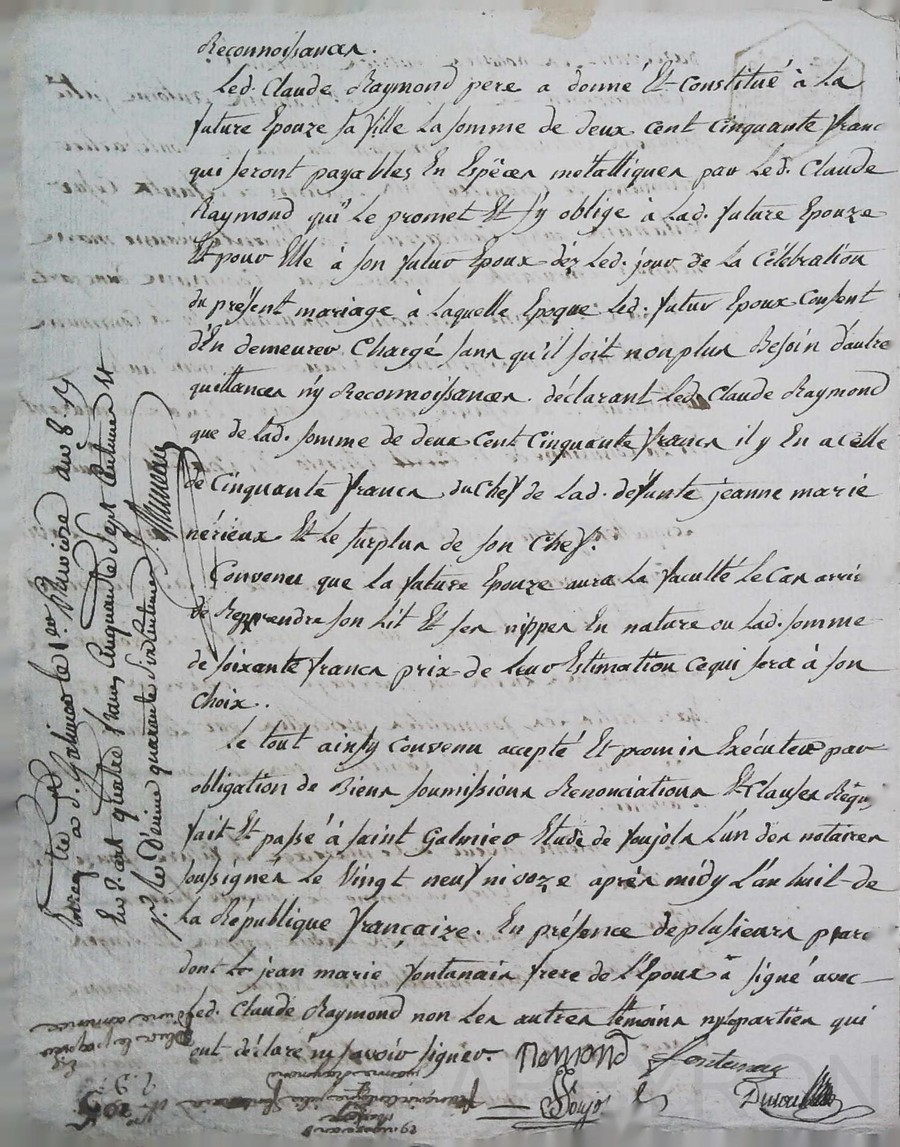 Reconnoissances.
Led. Claude Raymond pere a donné Et constitué à La
future Epouze sa fille La somme de deux cent cinquante franc
qui seront payables En Espèces mettalliques par Led. Claude
Raymond qui Le promet Et s'y oblige à Lad. future Epouze
Et pour Elle à son futur Epoux déz Led. jour de La Célébration
du présent mariage à Laquelle Epoque Led. futur Epoux Consent
d'En demeurer Chargé sans qu'il soit non plus Besoin d'autre
quittances n'y Reconnoissances. déclarant Led. Claude Raymond
que de Lad. somme de deux Cent Cinquante francs il y En a celle
de Cinquante francs du Chef de Lad. defunte jeanne marie
nérieux Et Le surplus de son Chef.
Convenu que La future Epouze aura La faculté Le Cas arri
de Repprendre son Lit Et ses nippes En nature ou Lad. somme
de soixante francs prix de Leur Estimation ce qui sera à son
Choix.
Le tout ainsy convenu accepté Et promis Exécuter par
obligation de Biens soumissions Renonciations Et Clauses Requi
fait Et passé à saint Galmier Etude de soujols L'un des notaires
soussignés Le Vingt neuf nivoze après midy L'an huit de
La République françaize. En présence de plusieurs par
dont jean marie fontanais frere de L'Epoux a signé avec
Led. Claude Raymond non Les autres témoins ny partier qui
ont déclaré ny savoir signer. Remond fontenay
à S. Galmier le 1er Pluviose an 8
quatre francs Cinquante Sept Centimes
Décime quarante Six Centimes